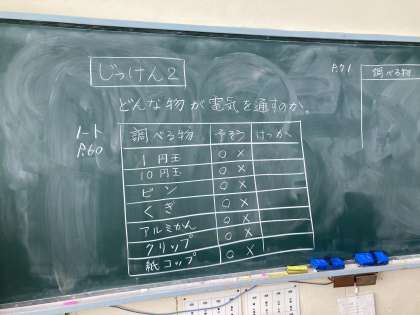 じっけん2
どんな物が電気を通すのか。
ノート
P.60
調べる物 予そう けっか
1円玉 ○ ×
10円玉 ○ ×
ビン ○ ×
くぎ ○ ×
アルミかん ○ ×
クリップ ○ ×
紙コップ ○ ×
P.71
調べる物